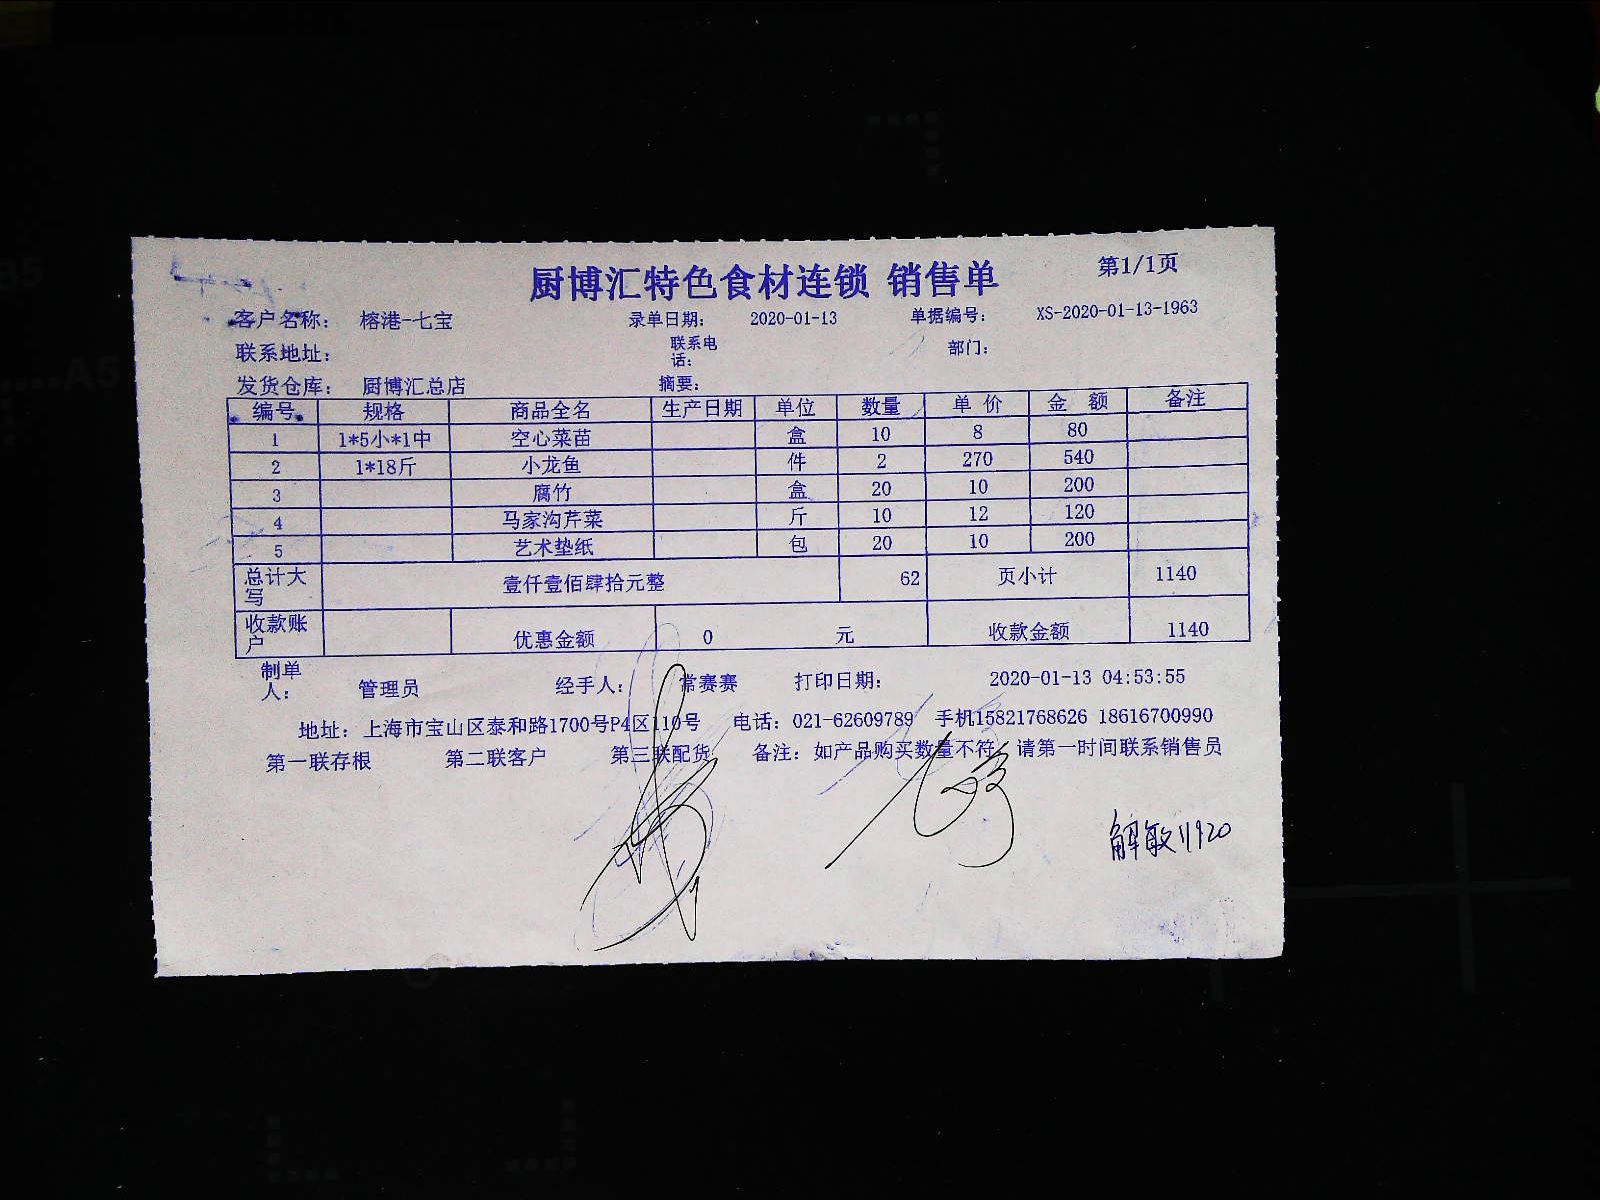 厨博汇特色食材连锁 销售单 第1/1页
客户名称： 榕港-七宝 录单日期： 2020-01-13 单据编号： XS-2020-01-13-1963
联系地址： 联系电话： 部门：
发货仓库： 厨博汇总店 摘要：
编号 规格 商品全名 生产日期 单位 数量 单 价 金 额 备注
1 1*5小*1中 空心菜苗 盒 10 8 80
2 1*18斤 小龙鱼 件 2 270 540
3 腐竹 盒 20 10 200
4 马家沟芹菜 斤 10 12 120
5 艺术垫纸 包 20 10 200
总计大写 壹仟壹佰肆拾元整 62 页小计 1140
收款账户 优惠金额 0 元 收款金额 1140
制单人： 管理员 经手人： 常赛赛 打印日期： 2020-01-13 04:53:55
地址：上海市宝山区泰和路1700号P4区110号 电话：021-62609789 手机15821768626 18616700990
第一联存根 第二联客户 第三联配货 备注：如产品购买数量不符，请第一时间联系销售员
解敏
A5